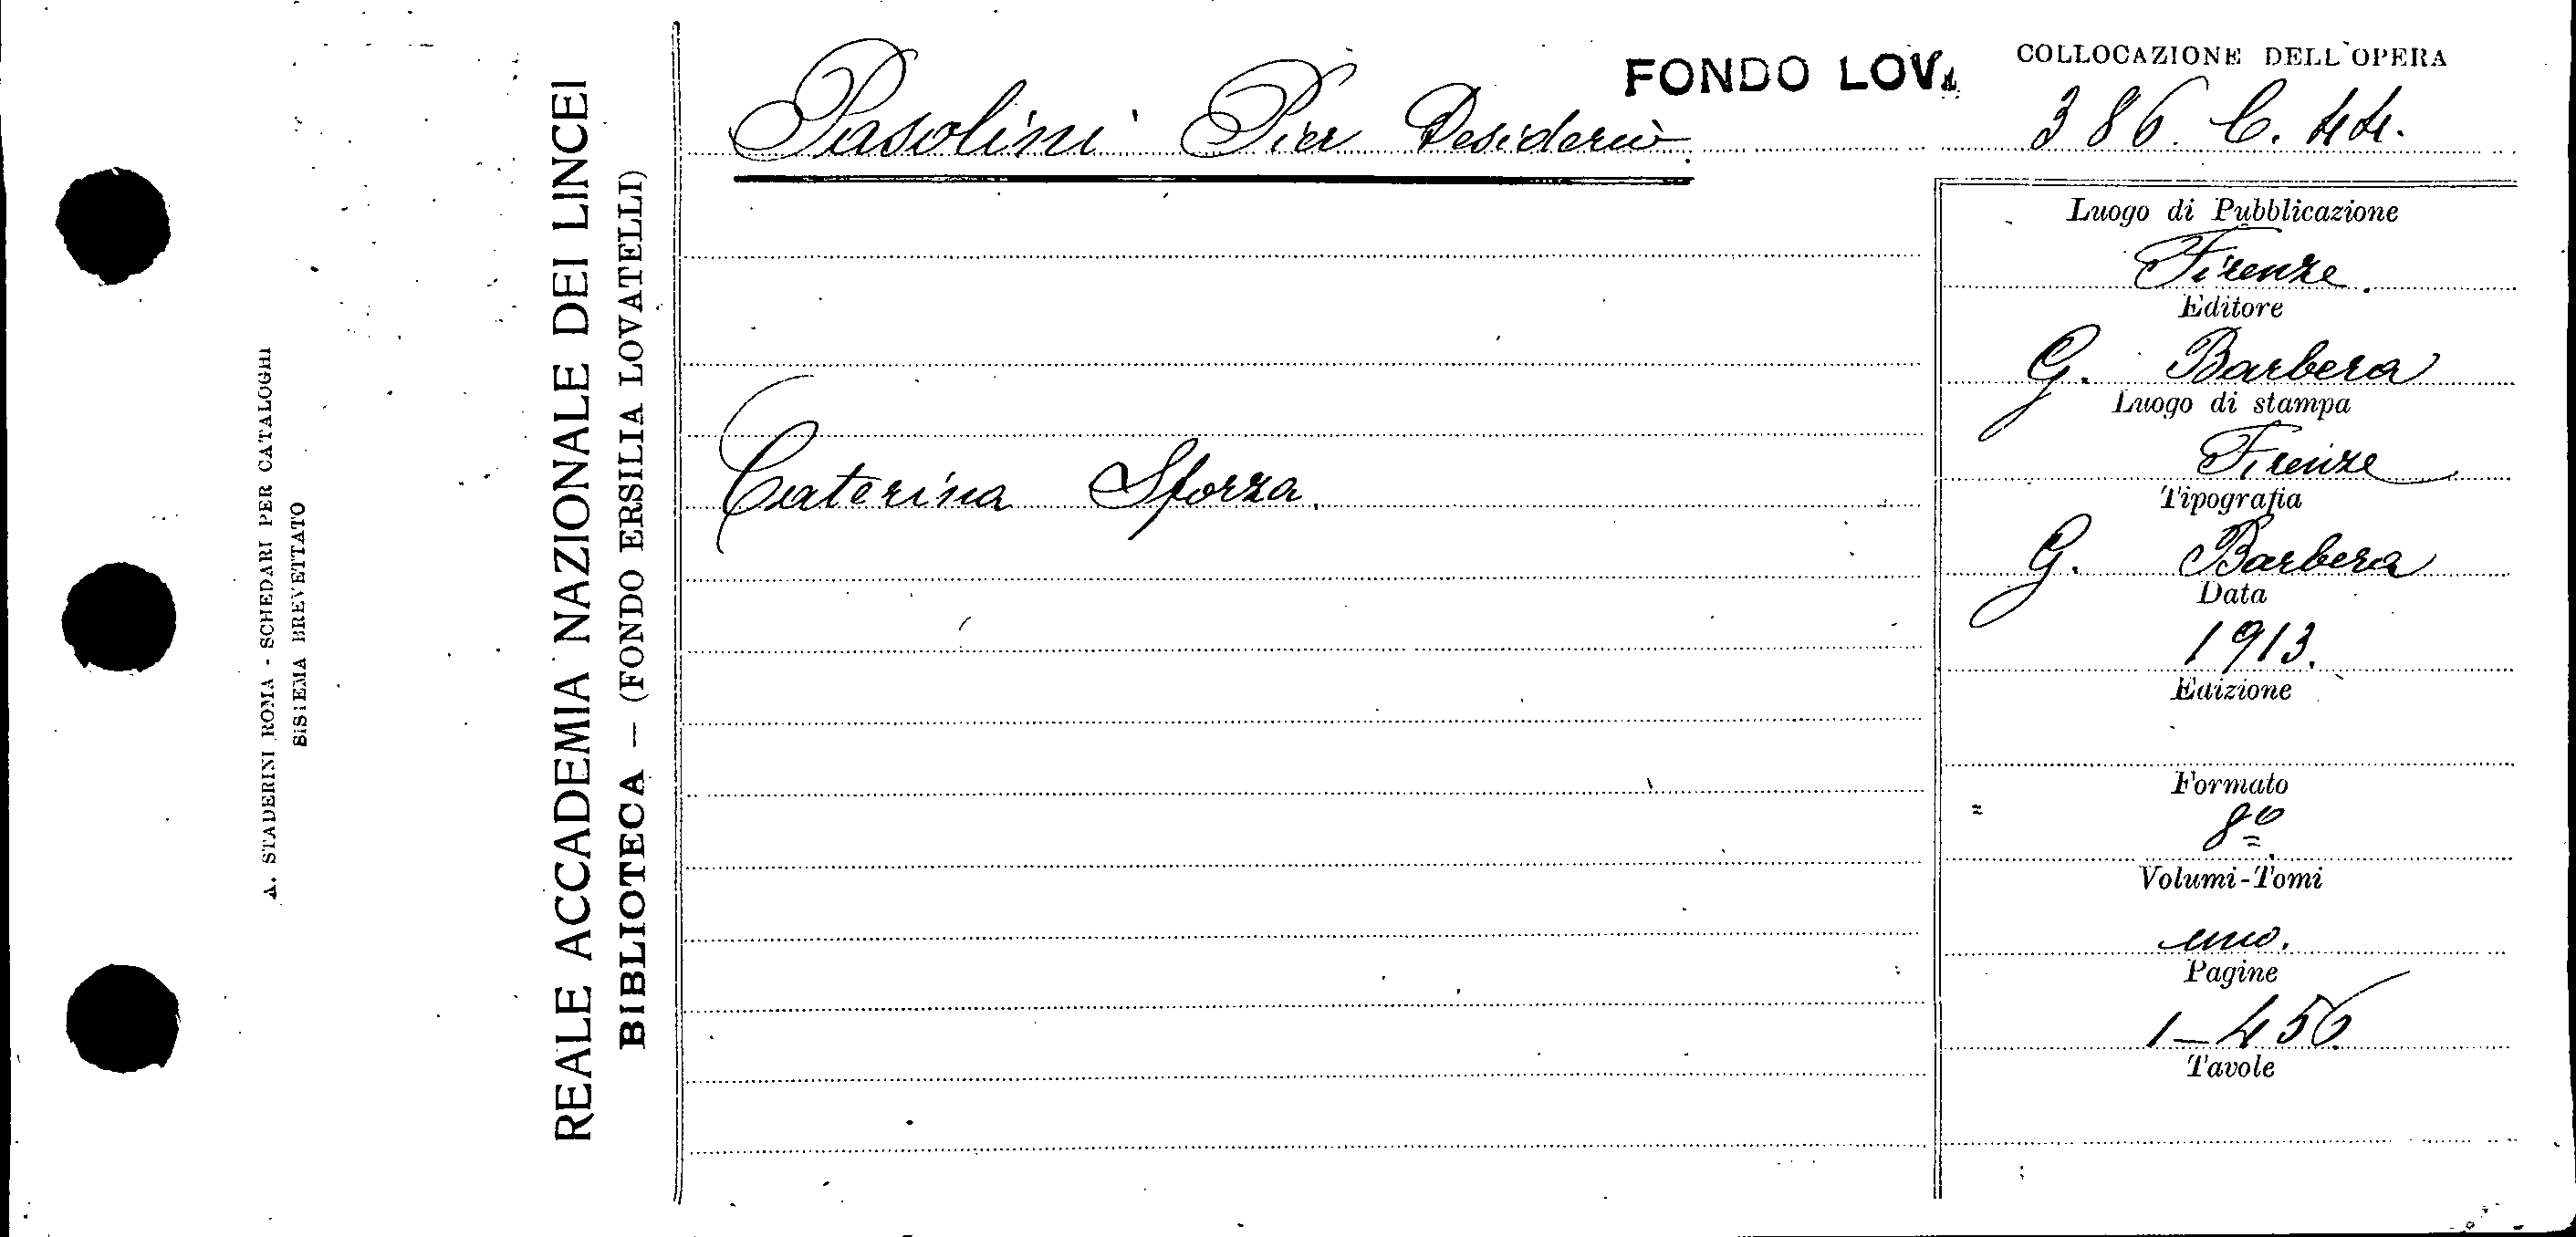 A. STADERINI ROMA - SCHEDARI PER CATALOGHI
SISTEMA BREVETTATO
REALE ACCADEMIA NAZIONALE DEI LINCEI
BIBLIOTECA — (FONDO ERSILIA LOVATELLI)
Pasolini Pier Desiderio
FONDO LOV.
Caterina Sforza.
COLLOCAZIONE DELL'OPERA
386. C. 44.
Luogo di Pubblicazione
Firenze.
Editore
G. Barbera
Luogo di stampa
Firenze
Tipografia
G. Barbera
Data
1913.
Edizione
Formato
8º
Volumi-Tomi
uno.
Pagine
1-456
Tavole